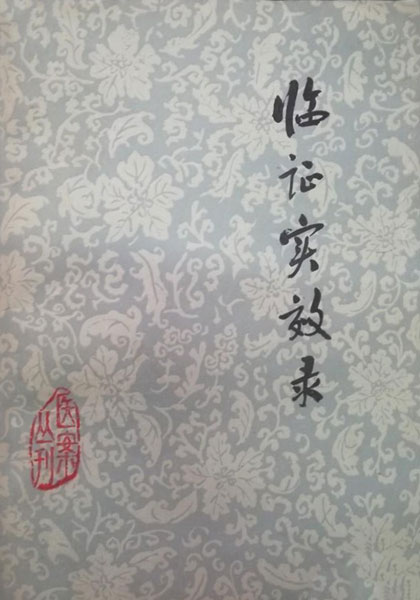 临证实效录
医案
丛刊